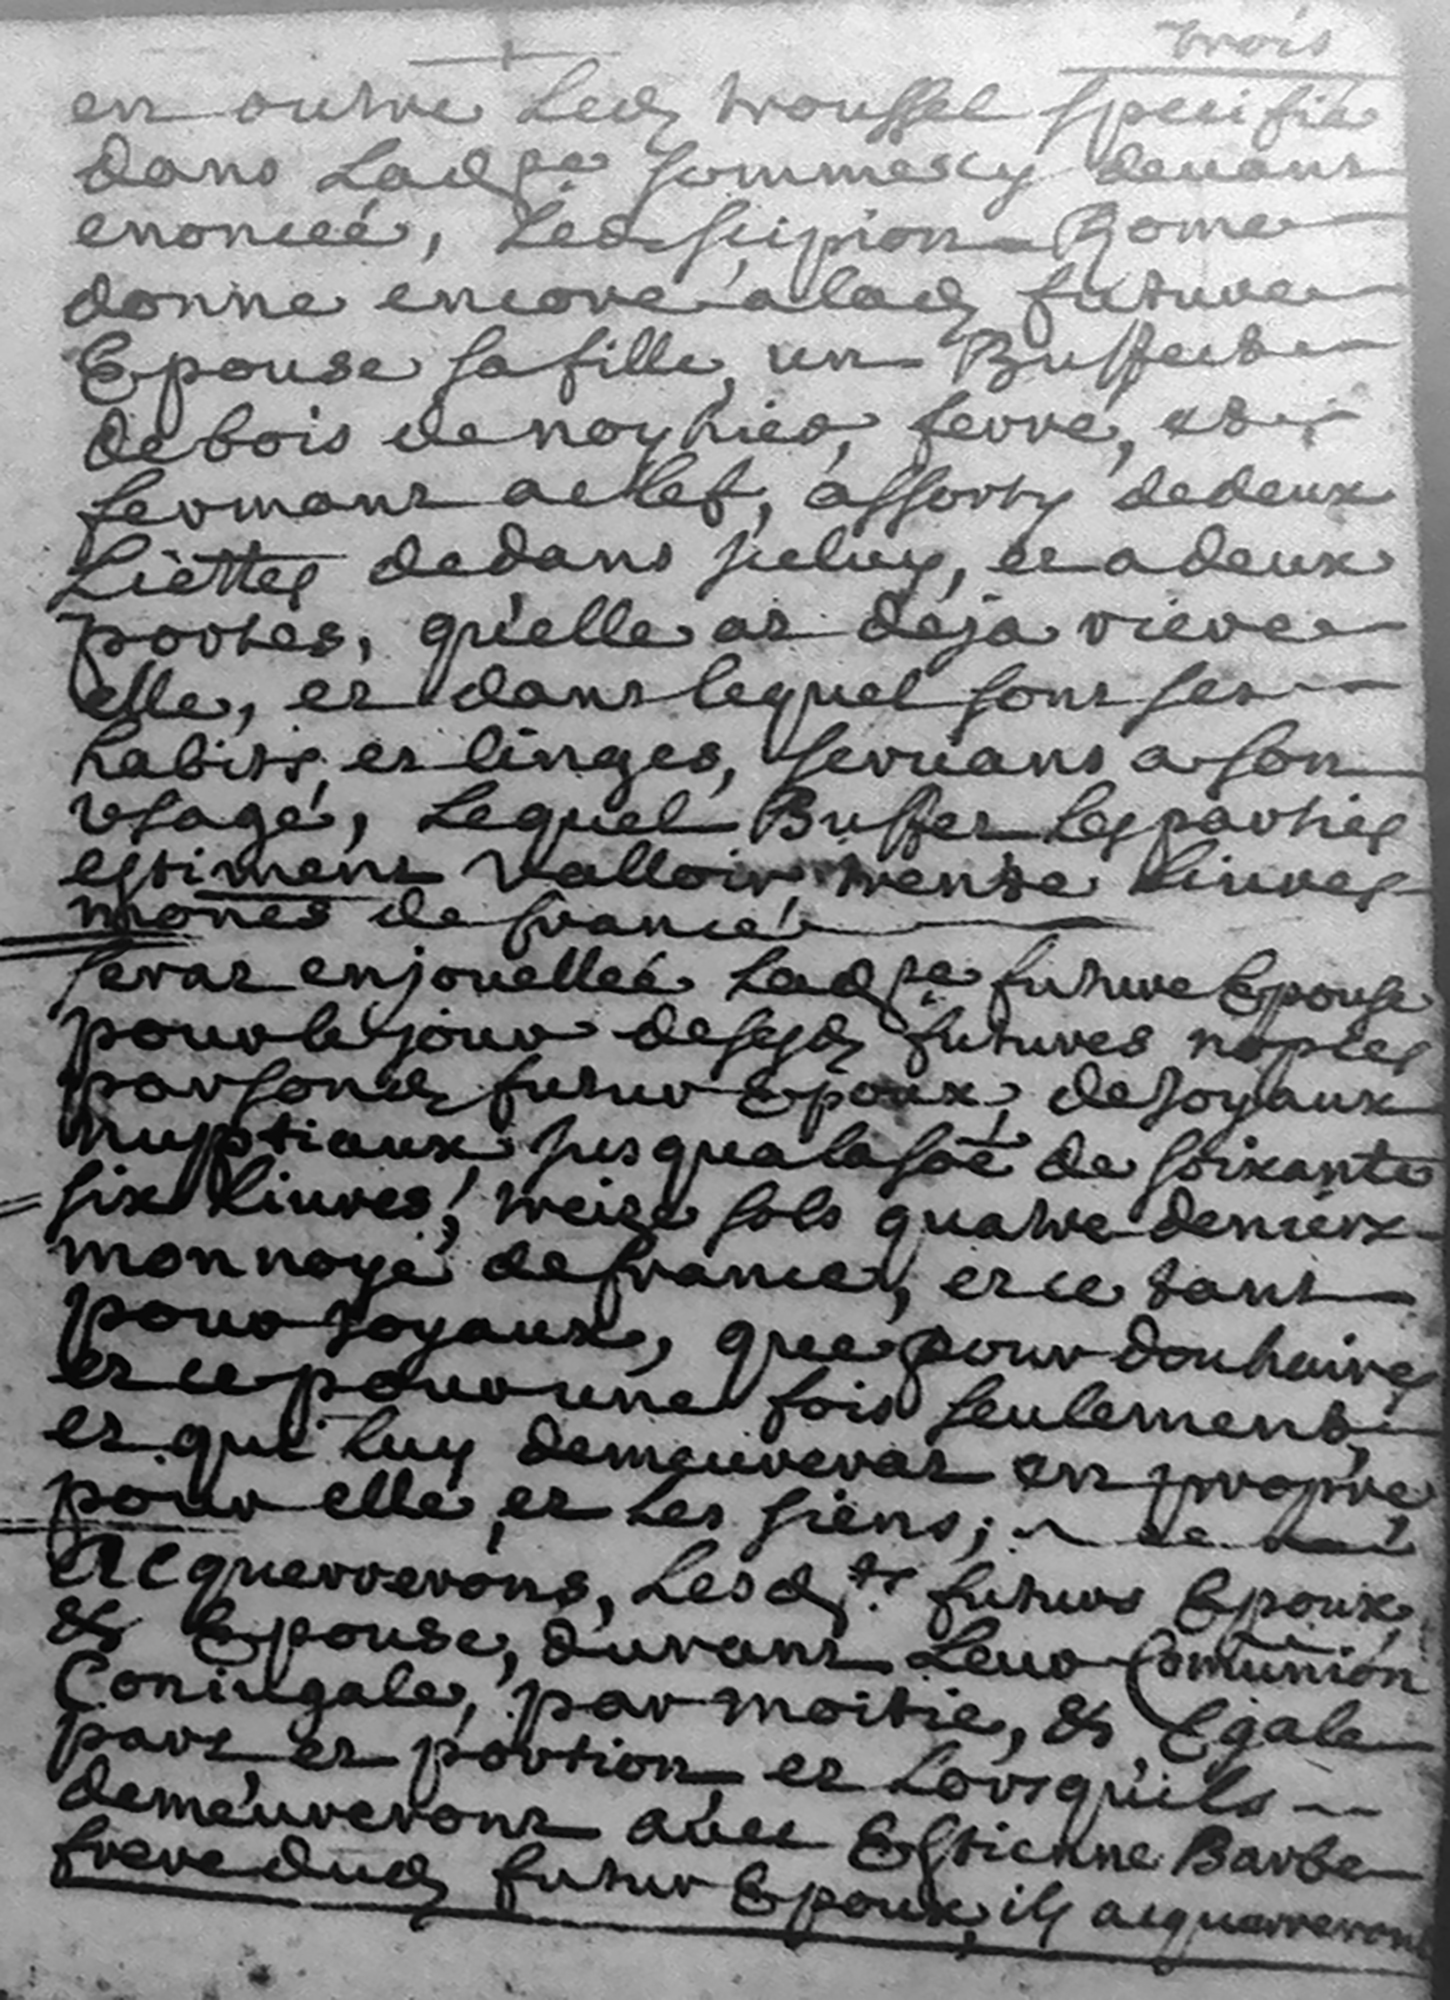 trois
en outre Led. troussel specifié
dans Lad. pte sommescy deuant
enonceé, Led. scipion Rome
donne encore a lad. future
Epouse sa fille, un Buffect
de bois de noyhier, ferré, et
fermant a clef, assorty de deux
Liettes dedans jceluy, et a deux
portes, qu'elle at deja riere
elle, et dans lequel sont ses
habits et linges, seruans a son
vsage, Lequel Buffet les parties
estiment Valloir trente liures
mones de france
serat enjouelleé Lad. pte future Epouse
pour le jour de sesd. futures nopces
par sond. futur Epoux, de Joyaux
nuptiaux jusqua la soē de soixante
six liures, treize sols quatre deniers
monnoye de france, et ce tant
pour Joyaux, que pour douhaire
et ce pour une fois seulement,
et qui luy demeurerat en propre
pour elle et les siens;
Acquerreront, Lesd. ts futurs Epoux,
& Epouse, durant Leur Comunion
Coniugale, par moitie, & Egale
part et portion et Lorsqu'ils
demeureront auec Estienne Barbe
frere dud. futur Epoux ils acquerreront